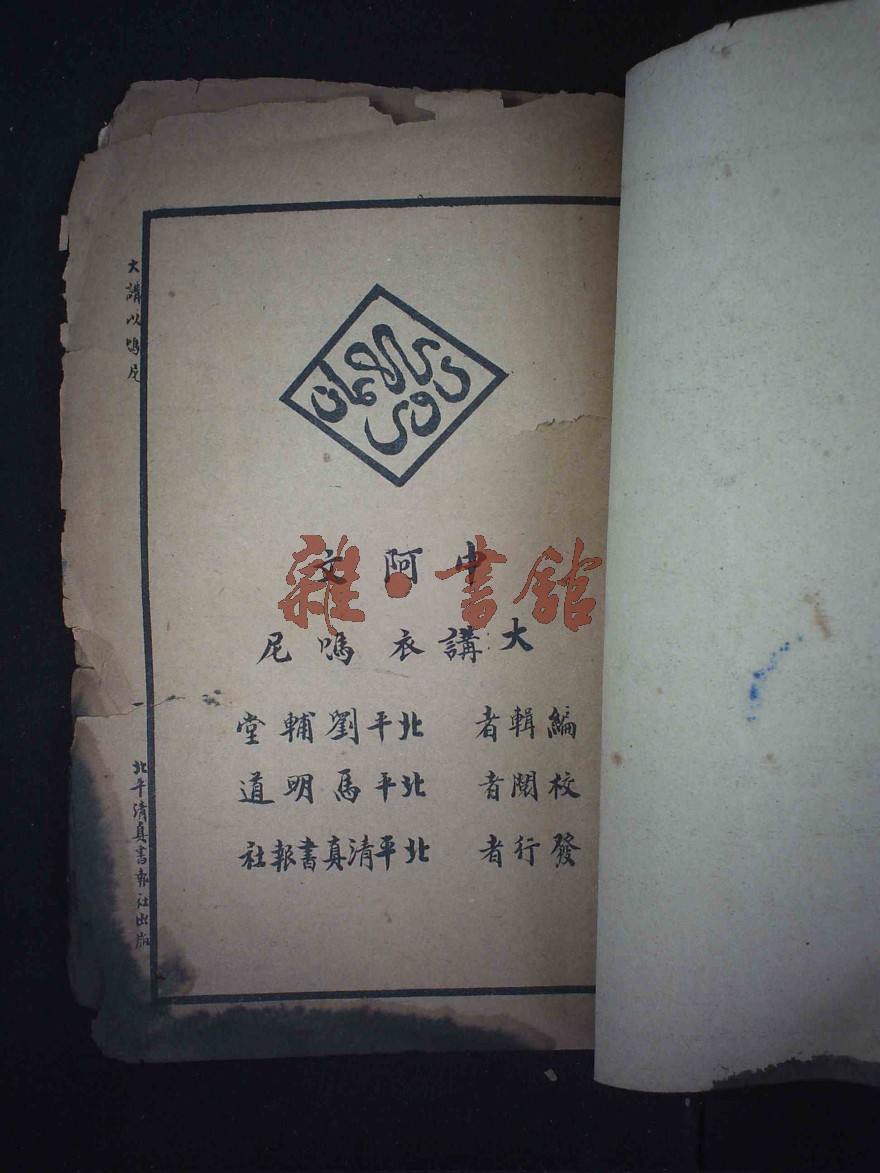 中阿文
大講衣嗎尼
編輯者 北平劉輔堂
校閱者 北平馬明道
發行者 北平清真書報社
大講以嗎尼
北平清真書報社出版
雜·書館